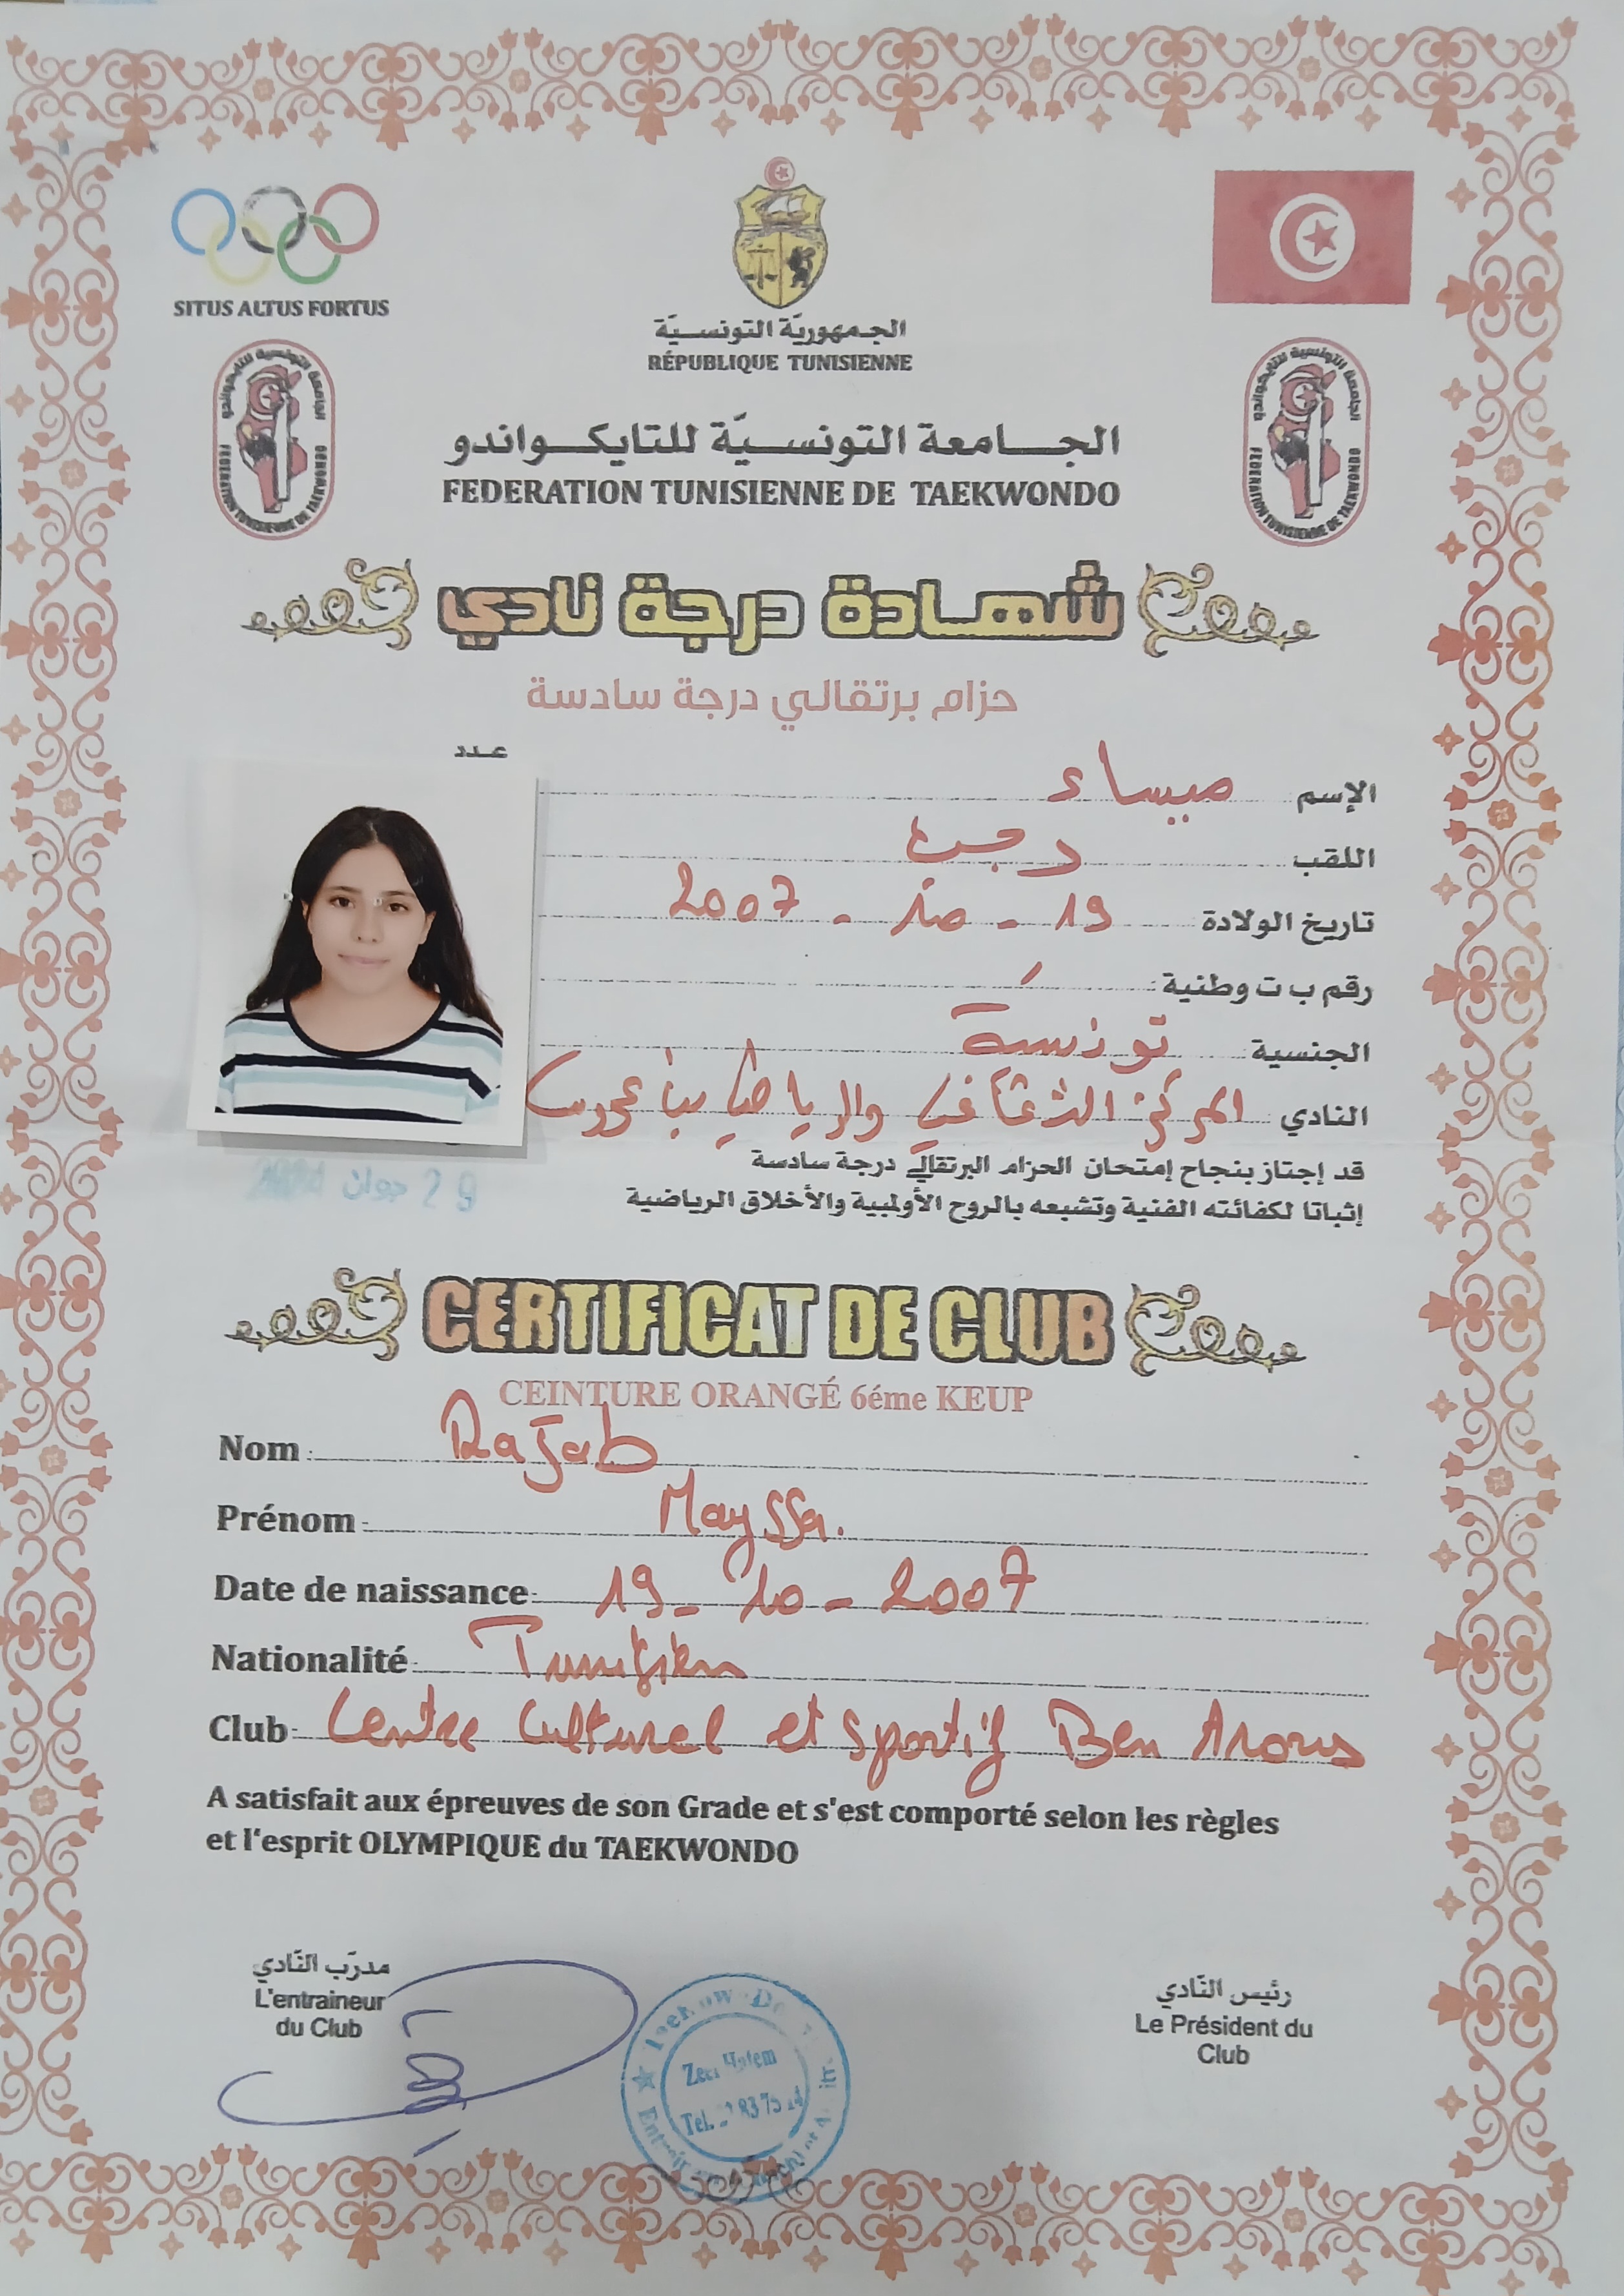 SITUS ALTUS FORTUS
الجمهوريّة التونسيّة
RÉPUBLIQUE TUNISIENNE
الجامعة التونسية للتايكواندو
FEDERATION TUNISIENNE DE TAEKWONDO
الجامعة التونسيّة للتايكواندو
FEDERATION TUNISIENNE DE TAEKWONDO
الجامعة التونسية للتايكواندو
FEDERATION TUNISIENNE DE TAEKWONDO
شهادة درجة نادي
حزام برتقالي درجة سادسة
عدد
الإسم ميساء
اللقب رجب
تاريخ الولادة 19 - - 2007
رقم ب ت وطنية
الجنسية تونسية
النادي المركز الثقافي والرياضي بن عروس
قد إجتاز بنجاح إمتحان الحزام البرتقالي درجة سادسة
إثباتا لكفائته الفنية وتشبعه بالروح الأولمبية والأخلاق الرياضية
29 جوان 2024
CERTIFICAT DE CLUB
CEINTURE ORANGÉ 6éme KEUP
Nom : Rajab
Prénom Mayssa.
Date de naissance 19 - 10 - 2007
Nationalité Tunisien
Club Centre Culturel et Sportif Ben Arous
A satisfait aux épreuves de son Grade et s'est comporté selon les règles
et l'esprit OLYMPIQUE du TAEKWONDO
مدرّب النّادي
L'entraineur
du Club
رئيس النّادي
Le Président du
Club
Hatem
Tel.